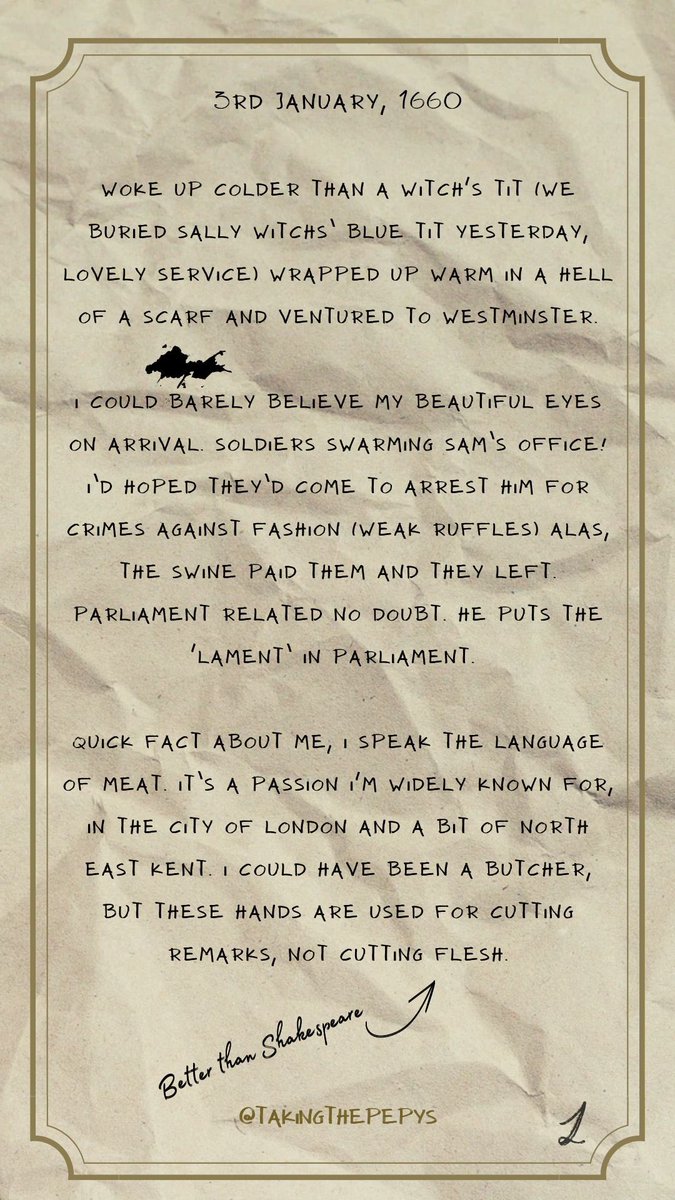 3RD JANUARY, 1660
WOKE UP COLDER THAN A WITCH'S TIT (WE
BURIED SALLY WITCHS' BLUE TIT YESTERDAY,
LOVELY SERVICE) WRAPPED UP WARM IN A HELL
OF A SCARF AND VENTURED TO WESTMINSTER.
I COULD BARELY BELIEVE MY BEAUTIFUL EYES
ON ARRIVAL. SOLDIERS SWARMING SAM'S OFFICE!
I'D HOPED THEY'D COME TO ARREST HIM FOR
CRIMES AGAINST FASHION (WEAK RUFFLES) ALAS,
THE SWINE PAID THEM AND THEY LEFT.
PARLIAMENT RELATED NO DOUBT. HE PUTS THE
'LAMENT' IN PARLIAMENT.
QUICK FACT ABOUT ME, I SPEAK THE LANGUAGE
OF MEAT. IT'S A PASSION I'M WIDELY KNOWN FOR,
IN THE CITY OF LONDON AND A BIT OF NORTH
EAST KENT. I COULD HAVE BEEN A BUTCHER,
BUT THESE HANDS ARE USED FOR CUTTING
REMARKS, NOT CUTTING FLESH.
Better than Shakespeare
@TAKINGTHEPEPYS
1